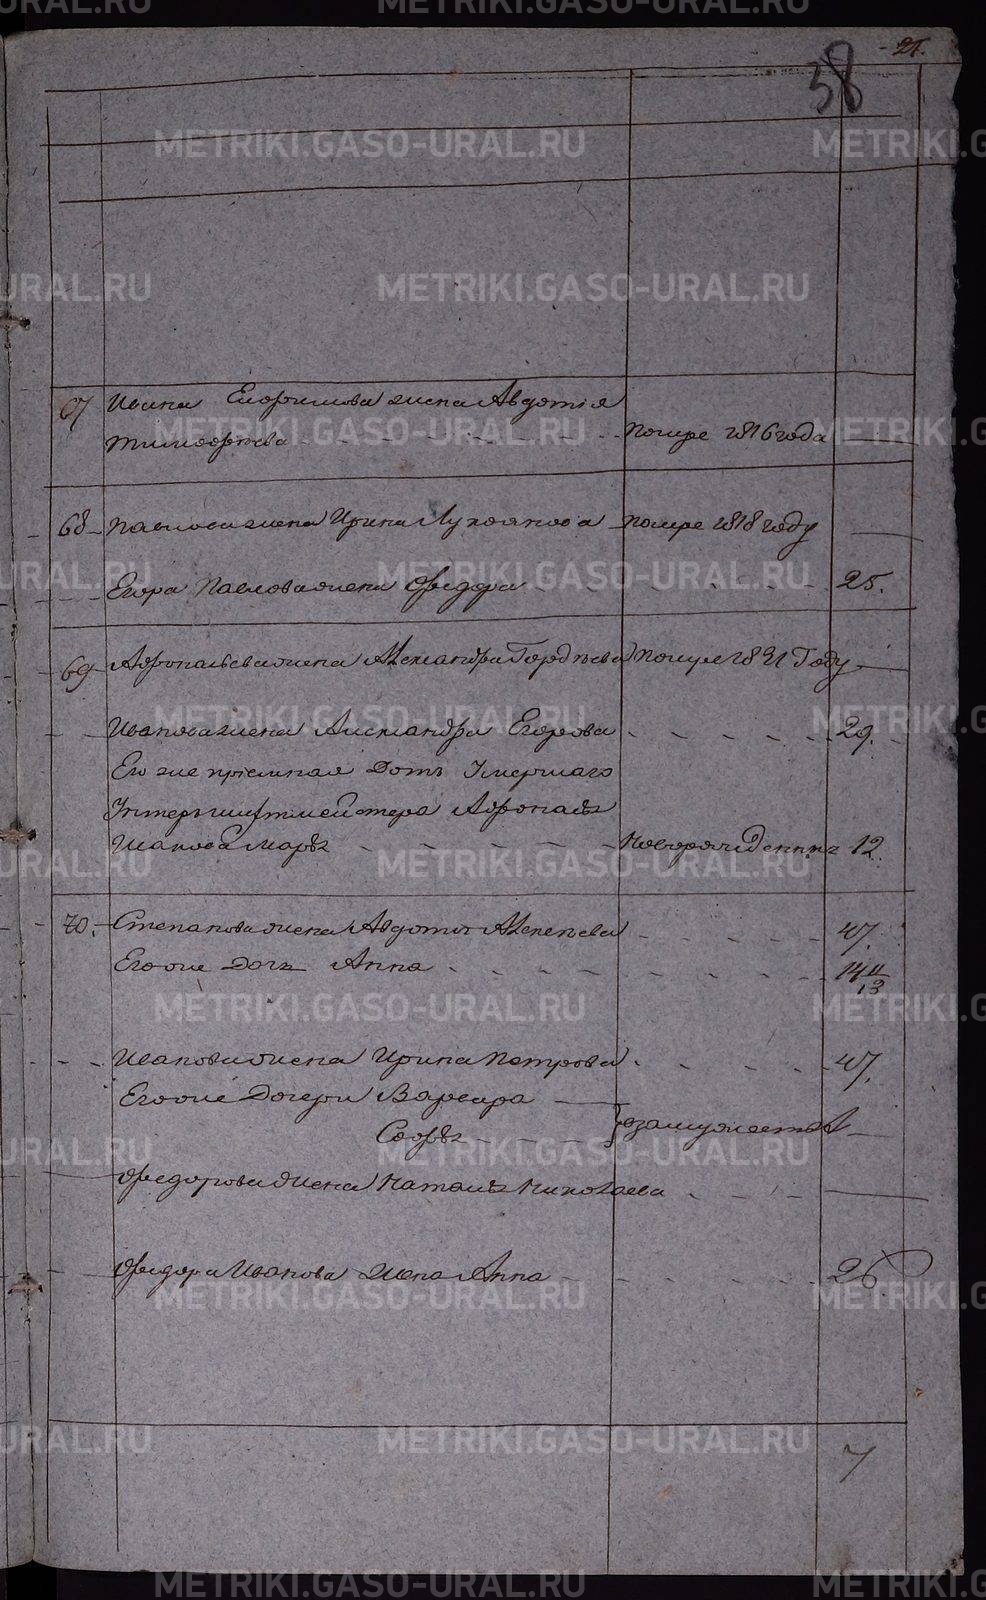 21.
58
67 Ивана Ефимова жена Авдотія
Тимофѣева помре 1816 года
68 Павлова жена Ирина Лукоянова помре 1818 году
Егора Павлова жена Федора 25.
69 Афонасьева жена Александра Гордѣева помре 1821 Году
Иванова жена Александра Егорова 29.
Его же пріемная Дочь Умершаго
Унтершихтмейстера Афонасья
Марья 12
70. Степанова жена Авдотья Алексѣева 47.
Его же Дочь Анна 14
13
Иванова жена Ирина Петрова 47.
Его же Дочери Варвара
Софья взамужества
Федорова жена Наталья Николаева
Федора Иванова жена Анна 26
7
METRIKI.GASO-URAL.RU